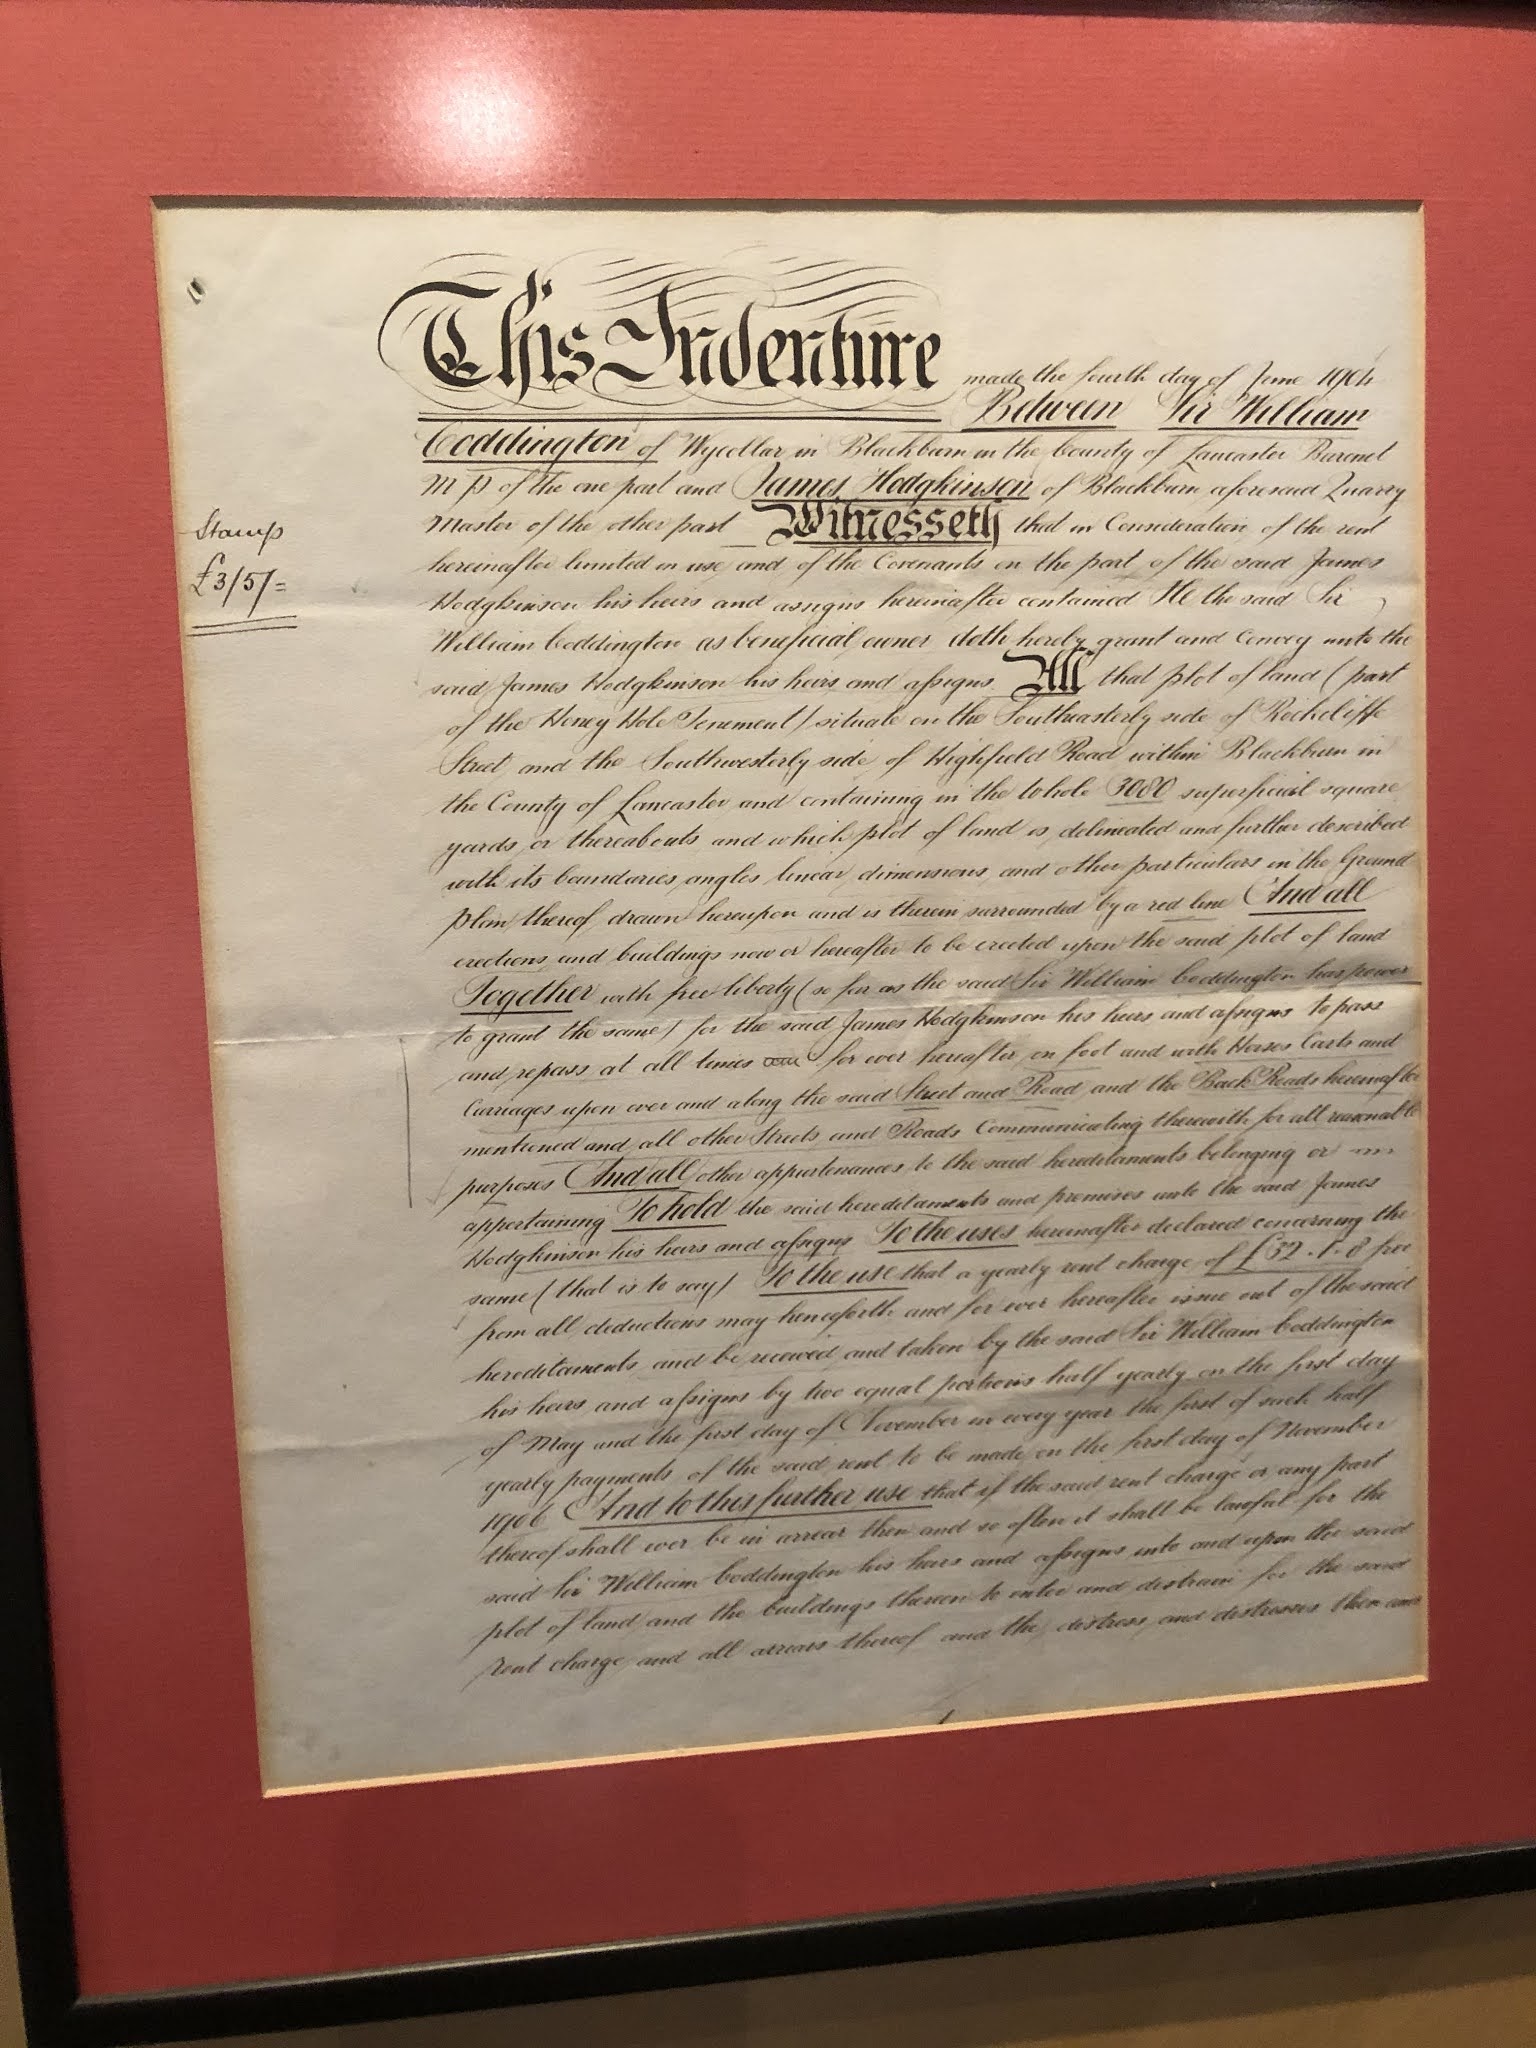 This Indenture made the fourth day of June 1904
Between Sir William
Coddington of Wycollar in Blackburn in the County of Lancaster Baronet
M P of the one part and James Hodgkinson of Blackburn aforesaid Quarry
Master of the other part Witnesseth that in Consideration of the rent
Stamp
£3/5/=
hereinafter limited in use and of the Covenants on the part of the said James
Hodgkinson his heirs and assigns hereinafter contained He the said Sir
William Coddington as beneficial owner doth hereby grant and convey unto the
said James Hodgkinson his heirs and assigns All that plot of land (part
of the Honey Hole Tenement) situate on the Southeasterly side of Rockcliffe
Street and the Southwesterly side of Highfield Road within Blackburn in
the County of Lancaster and containing in the whole 3080 superficial square
yards or thereabouts and which plot of land is delineated and further described
with its boundaries angles linear dimensions and other particulars in the Ground
plan thereof drawn hereupon and is therein surrounded by a red line And all
erections and buildings now or hereafter to be erected upon the said plot of land
Together with free liberty (so far as the said Sir William Coddington has power
to grant the same) for the said James Hodgkinson his heirs and assigns to pass
and repass at all times for ever hereafter on foot and with Horses Carts and
Carriages upon over and along the said Street and Road and the Back Roads hereinafter
mentioned and all other Streets and Roads Communicating therewith for all reasonable
purposes And all other appurtenances to the said hereditaments belonging or
appertaining To hold the said hereditaments and premises unto the said James
Hodgkinson his heirs and assigns To the uses hereinafter declared concerning the
same (that is to say) To the use that a yearly rent charge of £32.1.8 free
from all deductions may henceforth and for ever hereafter issue out of the said
hereditaments and be received and taken by the said Sir William Coddington
his heirs and assigns by two equal portions half yearly on the first day
of May and the first day of November in every year the first of such half
yearly payments of the said rent to be made on the first day of November
1906 And to this further use that if the said rent charge or any part
thereof shall ever be in arrear then and so often it shall be lawful for the
said Sir William Coddington his heirs and assigns into and upon the said
plot of land and the buildings thereon to enter and distrain for the said
rent charge and all arrears thereof and the distress and distresses then and